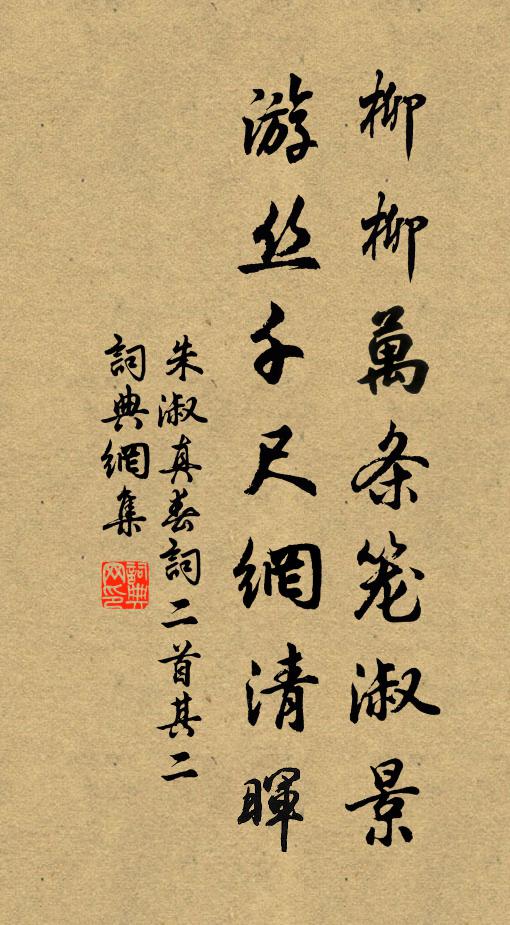 柳柳萬条笼淑景
游丝千尺網清暉
朱淑真春詞二首其二
詞典網集
詞典网印